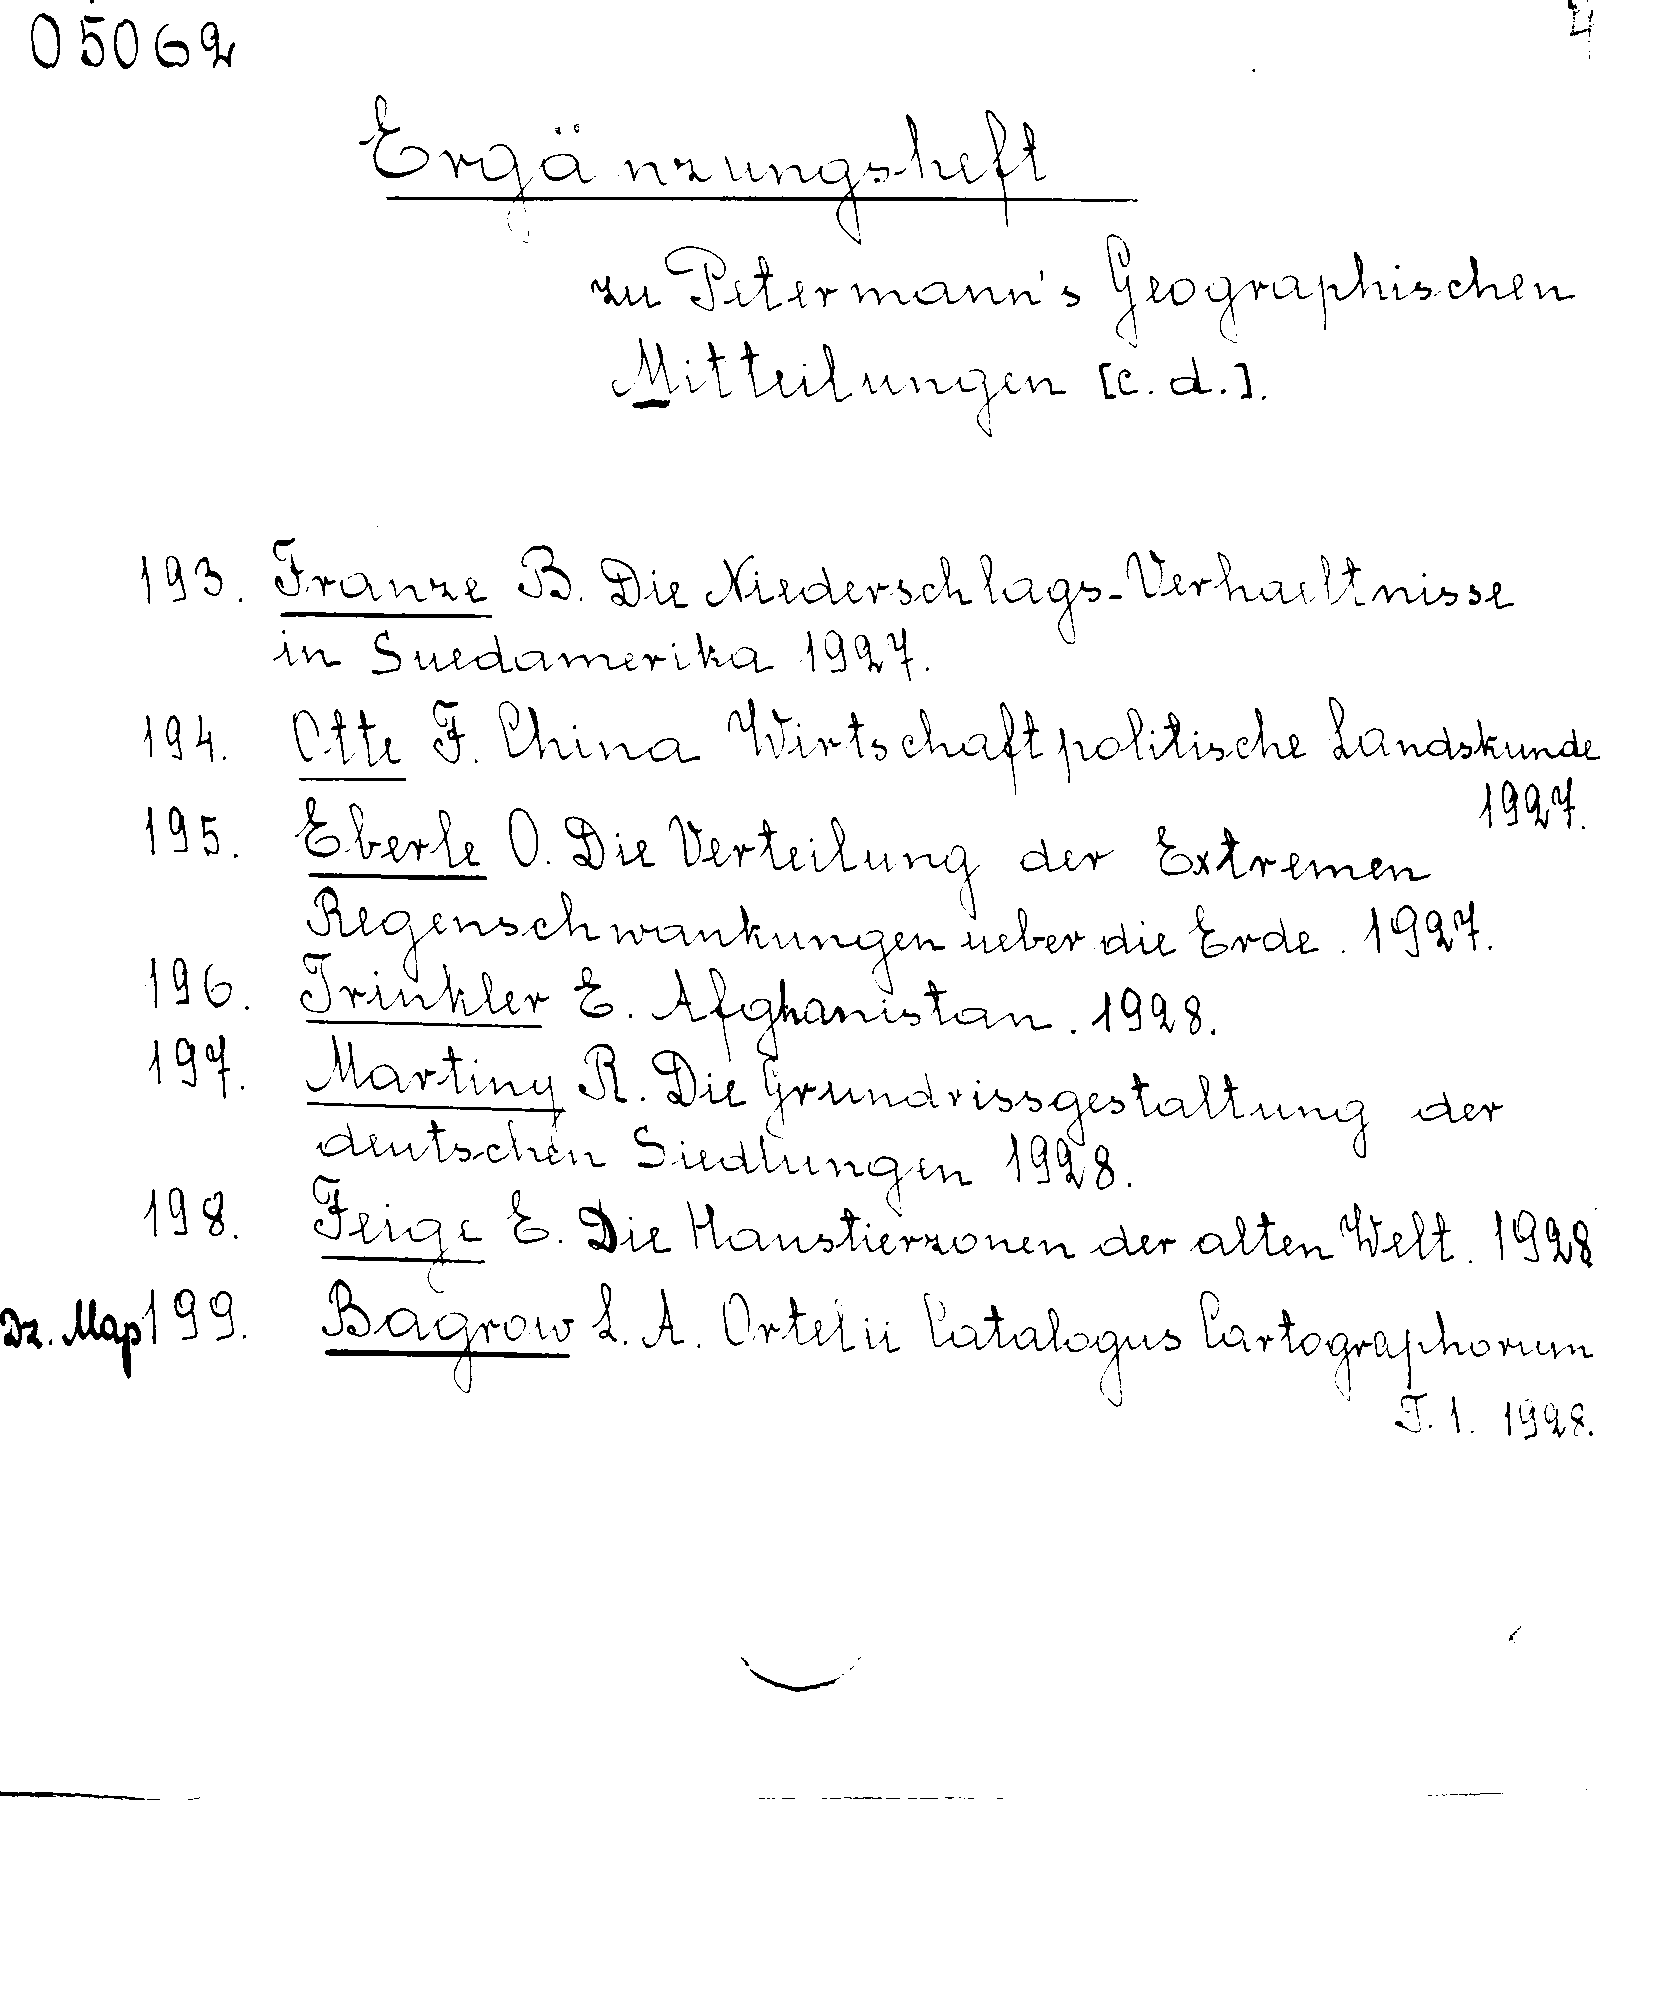 05062
4
Ergänzungsheft
zu Petermann's Geographischen
Mitteilungen [c. d.].
193. Franze B. Die Niederschlags-Verhaeltnisse
in Suedamerika 1927.
194. Otte F. China Wirtschaftpolitische Landskunde
1927.
195. Eberle O. Die Verteilung der Extremen
Regenschwankungen ueber die Erde. 1927.
196. Trinkler E. Afghanistan. 1928.
197. Martiny R. Die Grundrissgestaltung der
deutschen Siedlungen 1928.
198. Feige E. Die Haustierzonen der alten Welt. 1928
Dz. Map 199. Bagrow L. A. Ortelii Catalogus Cartographorum
T. 1. 1928.